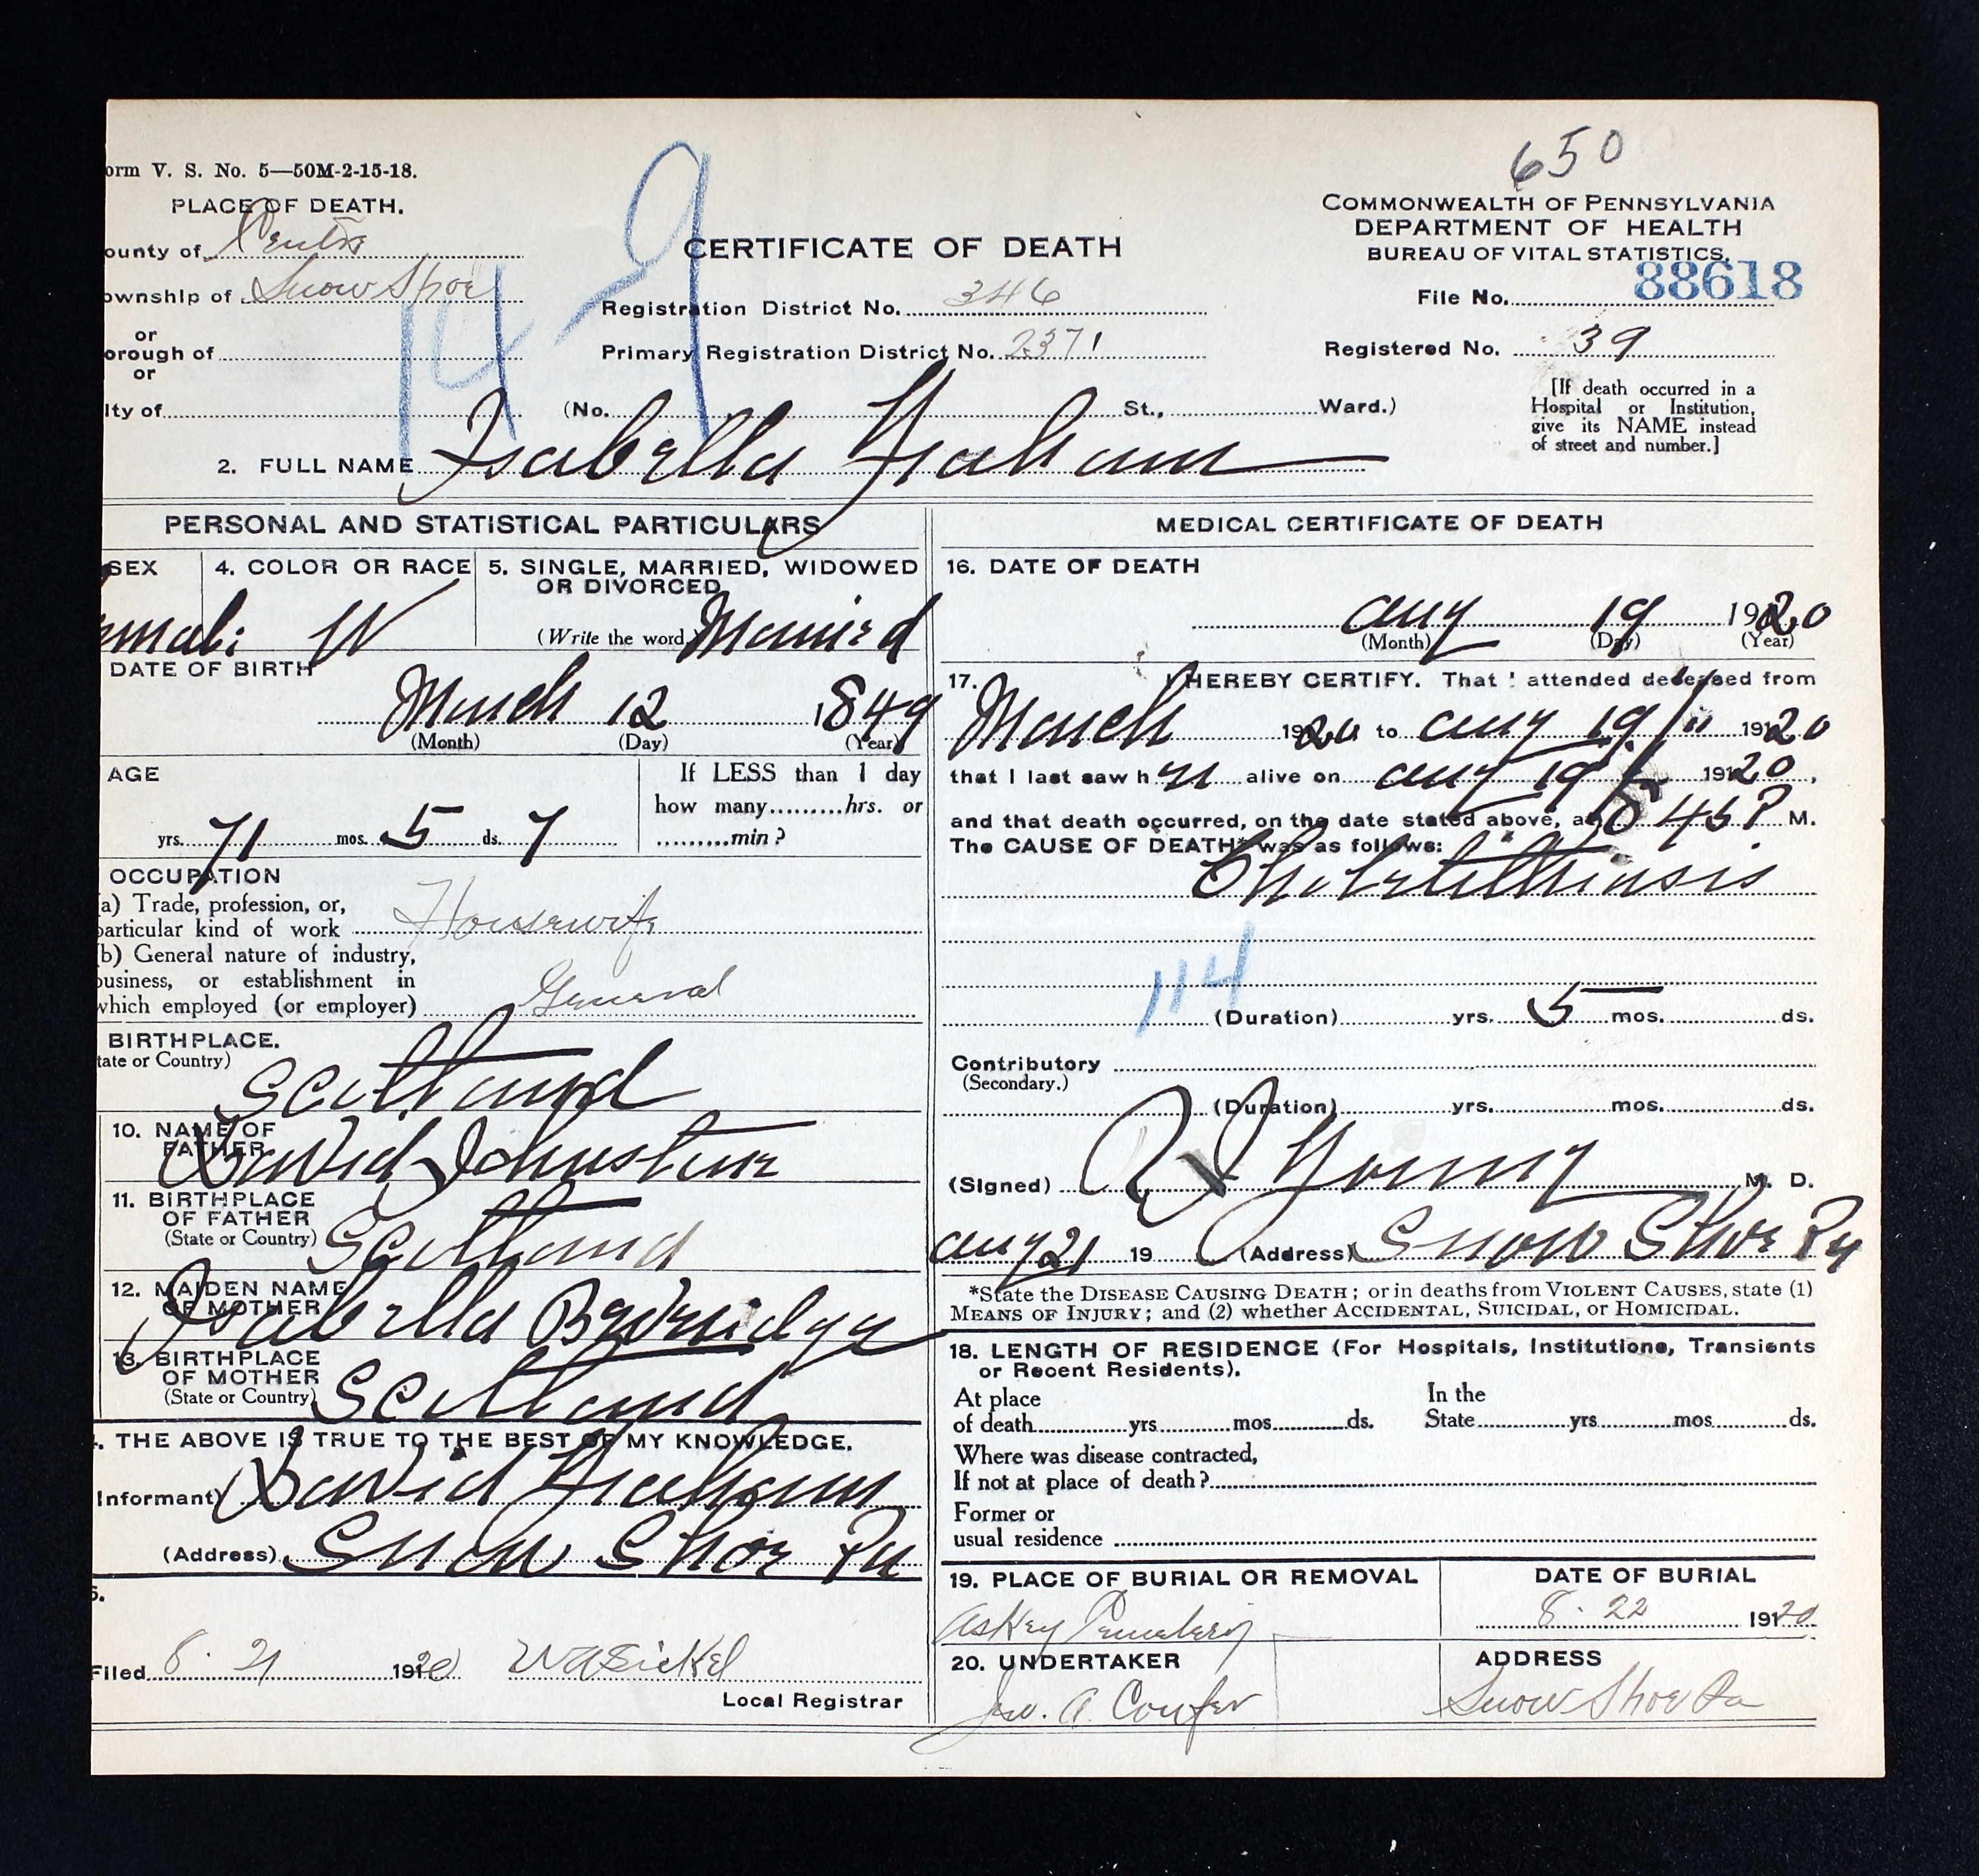 650
orm V. S. No. 5—50M-2-15-18.
PLACE OF DEATH.
ounty of Centre
ownship of Snow Shoe
or
orough of
or
ity of
149
CERTIFICATE OF DEATH
Registration District No. 346
Primary Registration District No. 2371
(No. St., Ward.)
COMMONWEALTH OF PENNSYLVANIA
DEPARTMENT OF HEALTH
BUREAU OF VITAL STATISTICS.
File No. 88618
Registered No. 39
[If death occurred in a
Hospital or Institution,
give its NAME instead
of street and number.]
2. FULL NAME Isabella Graham
PERSONAL AND STATISTICAL PARTICULARS
SEX
emale
4. COLOR OR RACE
W
5. SINGLE, MARRIED, WIDOWED
OR DIVORCED
(Write the word) Married
DATE OF BIRTH
March 12 1849
(Month) (Day) (Year)
AGE
yrs. 71 mos. 5 ds. 7
If LESS than 1 day
how many hrs. or
min?
OCCUPATION
(a) Trade, profession, or,
particular kind of work Housewife
(b) General nature of industry,
business, or establishment in
which employed (or employer) General
BIRTHPLACE.
tate or Country)
Scotland
10. NAME OF
FATHER
David Johnstone
11. BIRTHPLACE
OF FATHER
(State or Country) Scotland
12. MAIDEN NAME
OF MOTHER
Isabella Beveridge
13. BIRTHPLACE
OF MOTHER
(State or Country) Scotland
. THE ABOVE IS TRUE TO THE BEST OF MY KNOWLEDGE.
Informant) David Graham
(Address) Snow Shoe Pa
5.
Filed 8. 21 1920 W A Sickel
Local Registrar
MEDICAL CERTIFICATE OF DEATH
16. DATE OF DEATH
Aug 19 1920
(Month) (Day) (Year)
17. I HEREBY CERTIFY. That I attended deceased from
March 1920 to Aug 19 1920
that I last saw her alive on Aug 19 1920,
and that death occurred, on the date stated above, at 8 45 P M.
The CAUSE OF DEATH* was as follows:
Cholelithiasis
114
(Duration) yrs. 5 mos. ds.
Contributory
(Secondary.)
(Duration) yrs. mos. ds.
(Signed) Young M. D.
Aug 21 19 (Address) Snow Shoe Pa
*State the DISEASE CAUSING DEATH; or in deaths from VIOLENT CAUSES, state (1)
MEANS OF INJURY; and (2) whether ACCIDENTAL, SUICIDAL, or HOMICIDAL.
18. LENGTH OF RESIDENCE (For Hospitals, Institutions, Transients
or Recent Residents).
At place
of death yrs mos ds.
In the
State yrs mos ds.
Where was disease contracted,
If not at place of death?
Former or
usual residence
19. PLACE OF BURIAL OR REMOVAL
Askey Cemetery
DATE OF BURIAL
8. 22 1920
20. UNDERTAKER
A. Confer
ADDRESS
Snow Shoe Pa